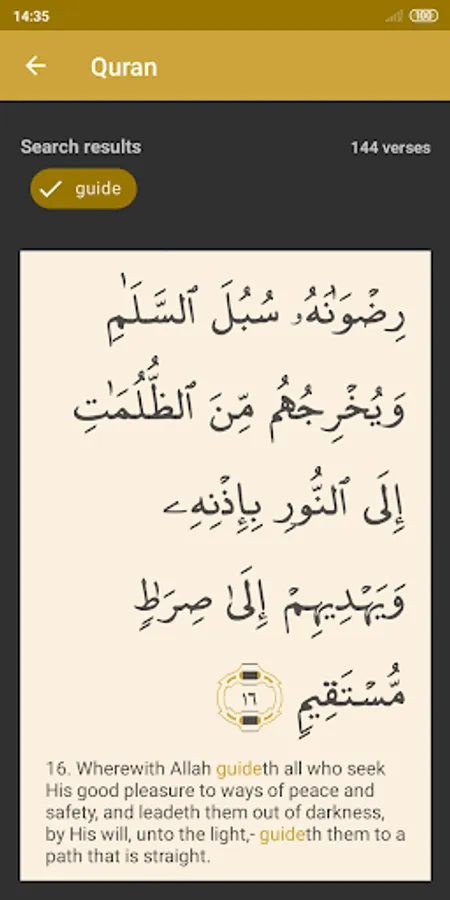 14:35
100
Quran
Search results
144 verses
guide
رِضْوَٰنَهُۥ سُبُلَ ٱلسَّلَٰمِ
وَيُخْرِجُهُم مِّنَ ٱلظُّلُمَٰتِ
إِلَى ٱلنُّورِ بِإِذْنِهِۦ
وَيَهْدِيهِمْ إِلَىٰ صِرَٰطٍ
مُّسْتَقِيمٍ ١٦
16. Wherewith Allah guideth all who seek
His good pleasure to ways of peace and
safety, and leadeth them out of darkness,
by His will, unto the light,- guideth them to a
path that is straight.